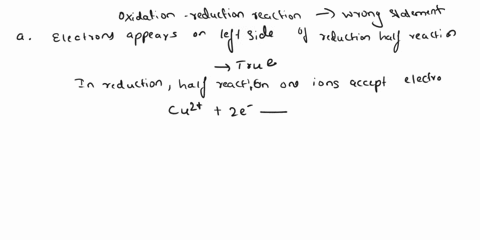 Oxidation-reduction reaction → wrong statement
a. Electrons appears on left side of reduction half reaction
→ True
In reduction, half reaction one ions accept electro
Cu²⁺ + 2e⁻ —